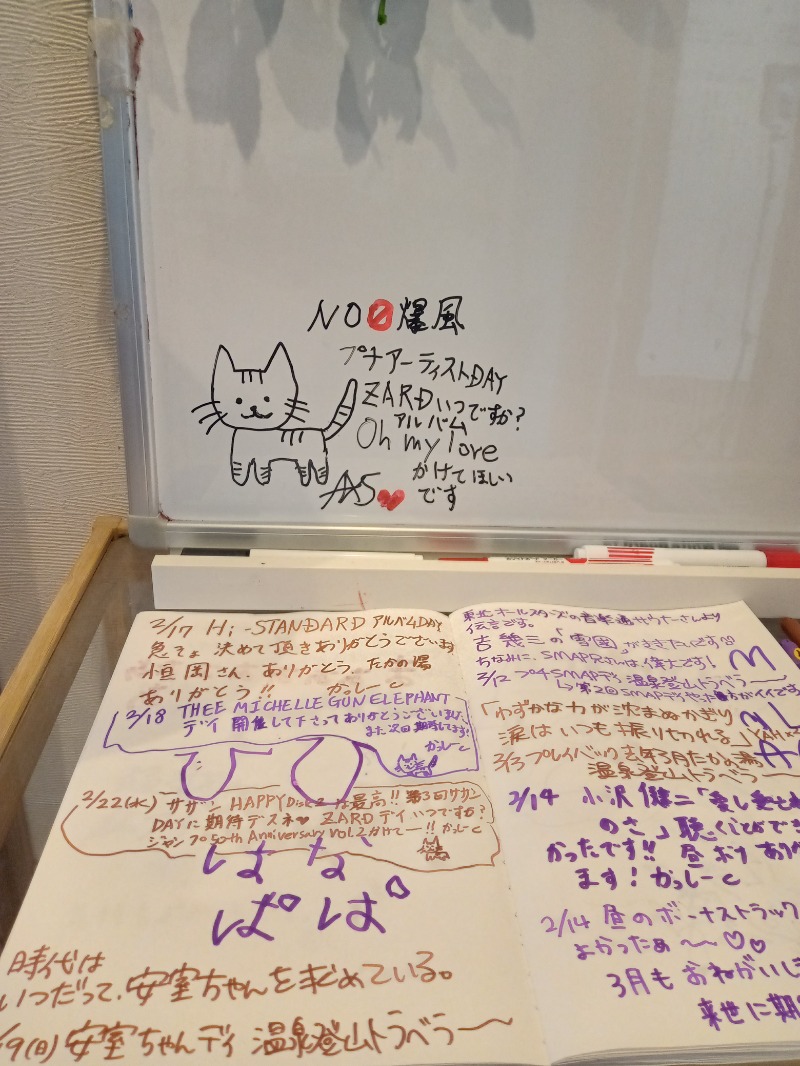 NO 爆風
プチアーティストDAY
ZARDいつですか?
アルバム
Oh my love
かけてほしい
です
2/17 Hi-STANDARD アルバムDAY
急きょ 決めて頂きありがとうございます
恒岡さん、ありがとう、たかの湯
ありがとう!! かっしーと
2/18 THEE MICHELLE GUN ELEPHANT
デイ 開催して下さってありがとうございます、
また次回期待してます!
かっしーと
2/22(水) サザン HAPPY Disc2は最高!! 第3回サザン
DAYに期待デスネ ZARDデイいつですか?
ジャンプ50th Anniversary Vol.2かけてー!! かっしーと
はな
ぱぱ
時代は
いつだって、安室ちゃんを求めている。
9(日) 安室ちゃんデイ 温泉登山トラベラー〜
東北オールスターズの音楽通サウナーさんより
伝言です。
吉幾三の「雪國」がききたいです
ちなみに、SMAP兄さんは偉大です!
2/12 プチSMAPデイ 温泉登山トラベラー〜
↳第2回SMAPデイ
「わずかな力が沈まぬかぎり
涙はいつも振り切れる」YAH
2/3 プレイバック去年3月たかの湯
温泉登山トラベラー〜
2/14 小沢健二「愛し愛され
のさ」聴くことができ
かったです!! 昼ボナ あり
ます! かっしーと
2/14 昼のボーナストラック
よかったぁ〜♡♡
3月もおねがいし
来世に期